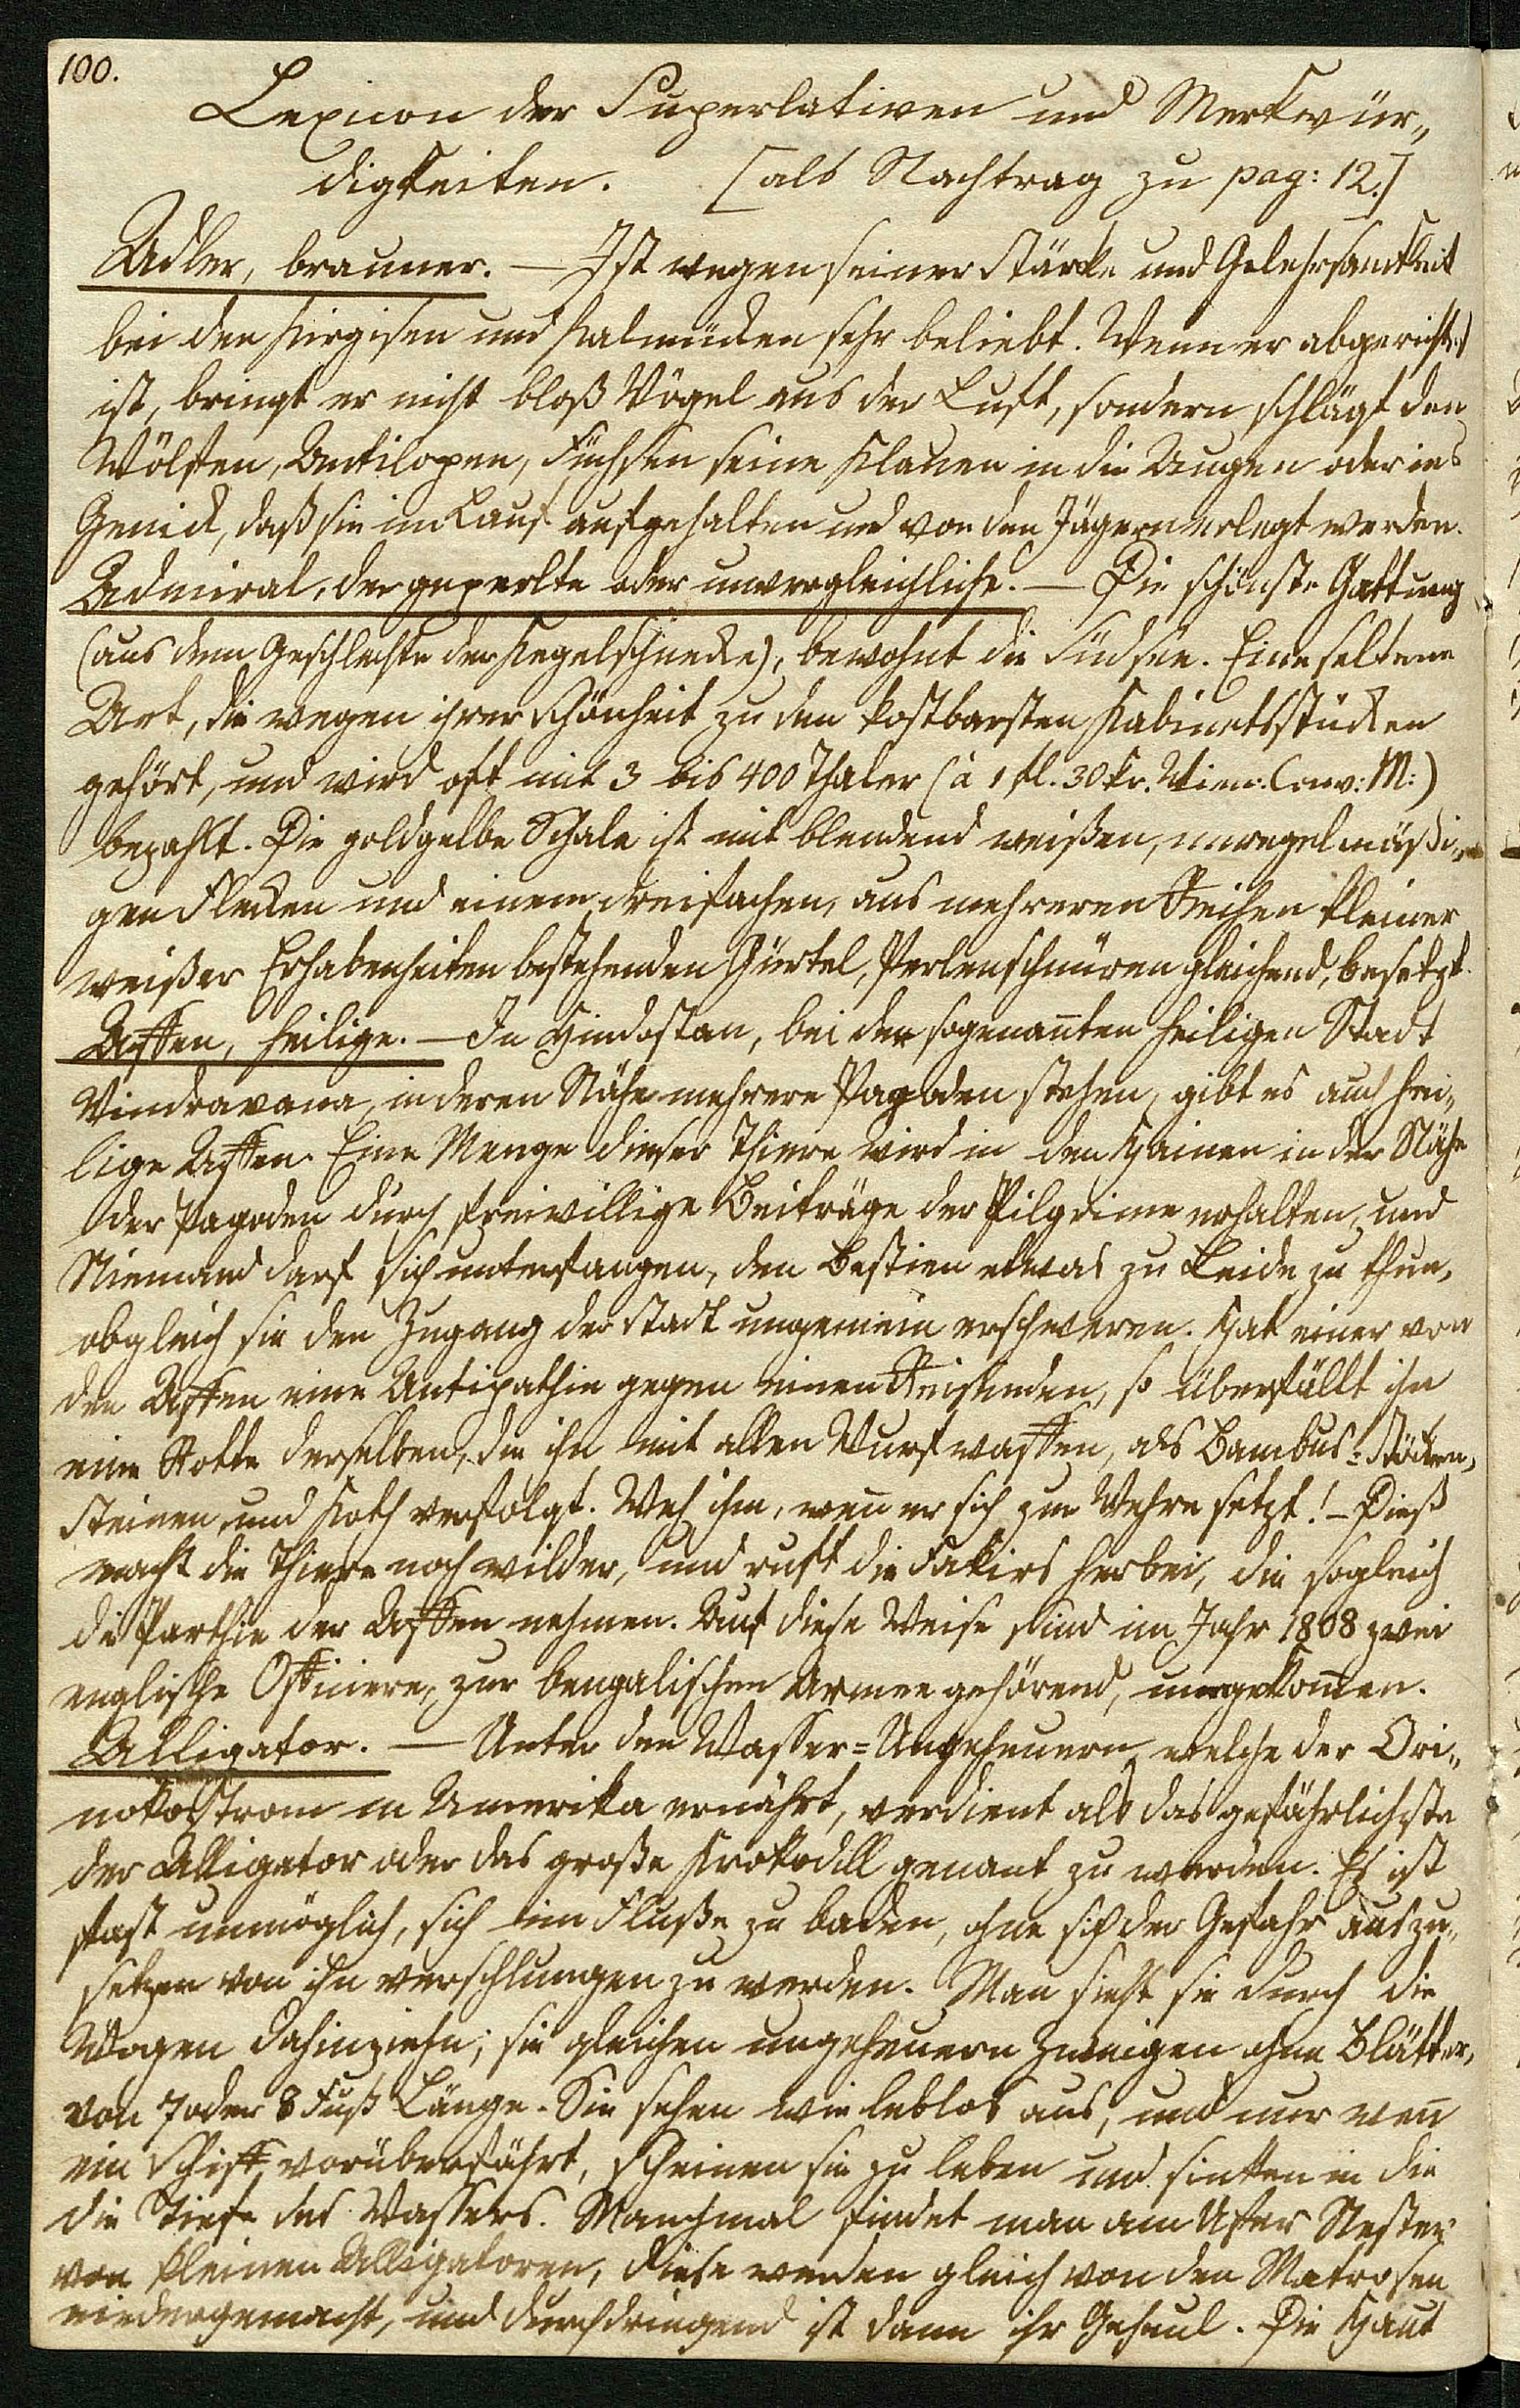 100.
Lexicon der Superlativen und Merkwür„
digkeiten. [als Nachtrag zu pag: 12.]
Adler, brauner. — Ist wegen seiner Stärke und Gelehrsamkeit
bei den Kirgisen und Kalmücken sehr beliebt. Wenn er abgerichtet
ist, bringt er nicht bloß Vögel aus der Luft, sondern schlägt den
Wölfen, Antilopen, Füchsen seine Klauen in die Augen oder ins
Genick, daß sie im Lauf aufgehalten und von den Jägern erlegt werden.
Admiral, der geperlte oder unvergleichliche. — Die schönste Gattung
(aus dem Geschlechte der Kegelschnecke), bewohnt die Südsee. Eine seltene
Art, die wegen ihrer Schönheit zu den kostbarsten Kabinetsstücken
gehört, und wird oft mit 3 bis 400 Thaler (à 1 fl. 30 kr. Wien: Conv: M:)
bezahlt. Die goldgelbe Schale ist mit blendend weißen, unregelmäßi„
gen Flecken und einem dreifachen, aus mehreren Reihen kleiner
weißer Erhabenheiten bestehenden Gürtel, Perlenschnüren gleichend, besetzt.
Affen, heilige. — In Hindostan, bei der sogenan̄ten heiligen Stadt
Vindravana, in deren Nähe mehrere Pagoden stehen, gibt es auch hei„
lige Affen. Eine Menge dieser Thiere wird in den Hainen in der Nähe
der Pagoden durch freiwillige Beiträge der Pilgrime erhalten, und
Niemand darf sich unterfangen, den Bestien etwas zu Leide zu thun,
obgleich sie den Zugang der Stadt ungemein erschweren. Hat einer von
den Affen eine Antipathie gegen einen Reisenden, so überfällt ihn
eine Rotte derselben, die ihn mit allen Wurfwaffen, als Bambus=Stöcken,
Steinen und Koth verfolgt. Weh ihm, wen̄ er sich zur Wehre setzt! – Dieß
macht die Thiere noch wilder, und ruft die Fakirs herbei, die sogleich
die Parthie der Affen nehmen. Auf diese Weise sind im Jahr 1808 zwei
englische Officiere, zur bengalischen Armee gehörend, umgekom̄en.
Alligator. — Unter den Wasser=Ungeheuern, welche der Ori„
nokostrom in Amerika ernährt, verdient als das gefährlichste
der Alligator oder das große Krokodill genant zu werden. Es ist
fast unmöglich, sich im Fluße zu baden, ohne sich der Gefahr auszu„
setzen von ihn verschlungen zu werden. Man sieht sie durch die
Wogen dahinziehn; sie gleichen ungeheuern Zweigen ohne Blätter,
von 7 oder 8 Fuß Länge. Sie sehen wie leblos aus, und nur wen̄
ein Schiff vorüberfährt, scheinen sie zu leben und sinken in die
die Tiefe des Wassers. Manchmal findet man am Ufer Nester
von kleinen Alligatoren, diese werden gleich von den Matrosen
niedergemacht, und durchdringend ist dann ihr Geheul. Die Haut